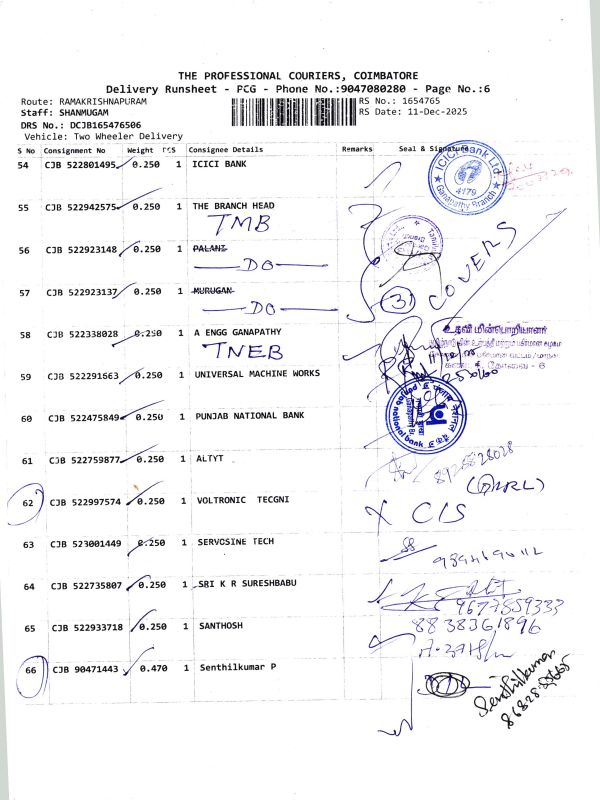 THE PROFESSIONAL COURIERS, COIMBATORE
Delivery Runsheet - PCG - Phone No.:9047080280 - Page No.:6
Route: RAMAKRISHNAPURAM
RS No.: 1654765
Staff: SHANMUGAM
RS Date: 11-Dec-2025
DRS No.: DCJB165476506
Vehicle: Two Wheeler Delivery
S No Consignment No Weight PCS Consignee Details Remarks Seal & Signature
54 CJB 522801495 0.250 1 ICICI BANK
ICICI Bank Ltd
4179
Ganapathy Branch
55 CJB 522942575 0.250 1 THE BRANCH HEAD
TMB
56 CJB 522923148 0.250 1 PALANI
DO
57 CJB 522923137 0.250 1 MURUGAN
DO
3 COVERS
58 CJB 522338028 0.250 1 A ENGG GANAPATHY
TNEB
உதவி மின்பொறியாளர்
59 CJB 522291663 0.250 1 UNIVERSAL MACHINE WORKS
60 CJB 522475849 0.250 1 PUNJAB NATIONAL BANK
punjab national bank
61 CJB 522759877 0.250 1 ALTYT
8925828028
62 CJB 522997574 0.250 1 VOLTRONIC TECGNI
X CIS
63 CJB 523001449 0.250 1 SERVOSINE TECH
64 CJB 522735807 0.250 1 SRI K R SURESHBABU
9677859333
65 CJB 522933718 0.250 1 SANTHOSH
8838361896
66 CJB 90471443 0.470 1 Senthilkumar P
Senthilkumar